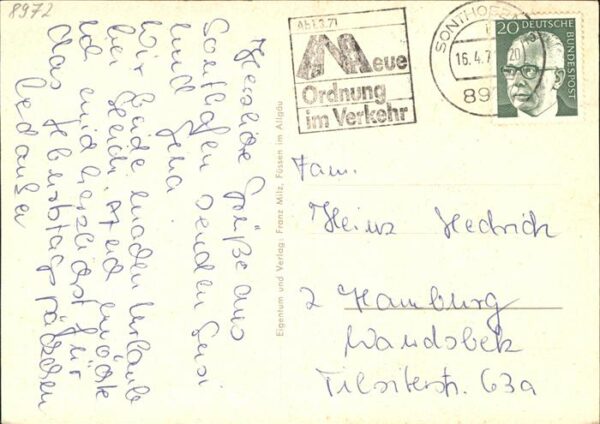 8972
Herzliche Grüße aus
Sonthofen senden Susi
und Jens
Wir beide machen Urlaub
bei Euch. Astrid möchte
ich mich herzlichst für
das Geburtstagspäckchen
bedanken
Eigentum und Verlag: Franz Milz, Füssen im Allgäu
Ab 1.3.71
Neue
Ordnung
im Verkehr
SONTHOFEN
16.4.7
20
DEUTSCHE
BUNDESPOST
Fam.
Heinz Hedrich
2 Hamburg
Wandsbek
Tilsiterstr. 63a